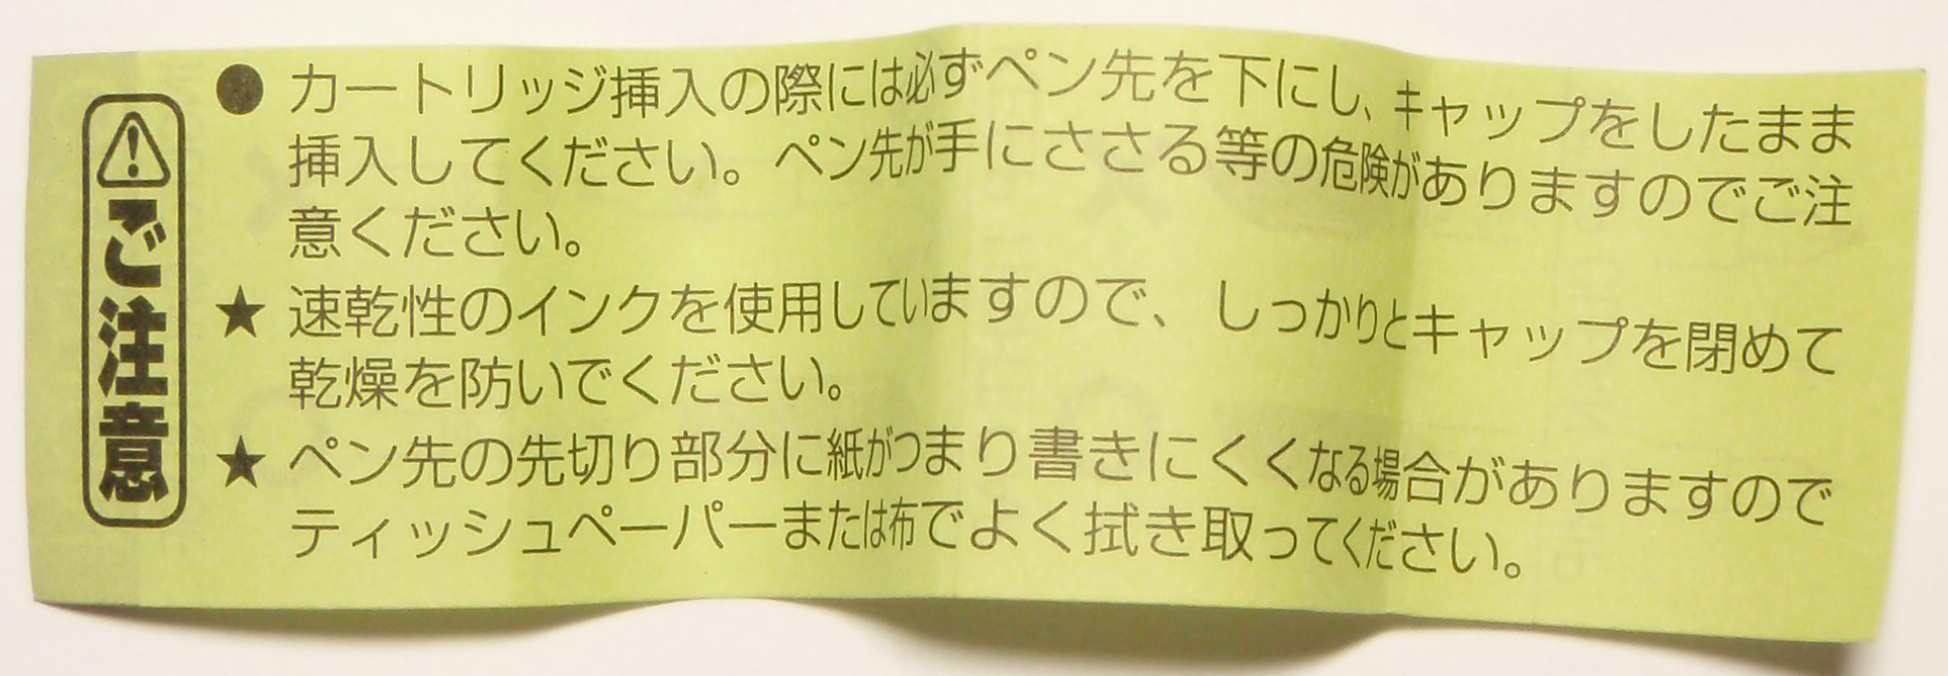 ⚠ご注意
● カートリッジ挿入の際には必ずペン先を下にし、キャップをしたまま
挿入してください。ペン先が手にささる等の危険がありますのでご注
意ください。
★ 速乾性のインクを使用していますので、しっかりとキャップを閉めて
乾燥を防いでください。
★ ペン先の先切り部分に紙がつまり書きにくくなる場合がありますので
ティッシュペーパーまたは布でよく拭き取ってください。